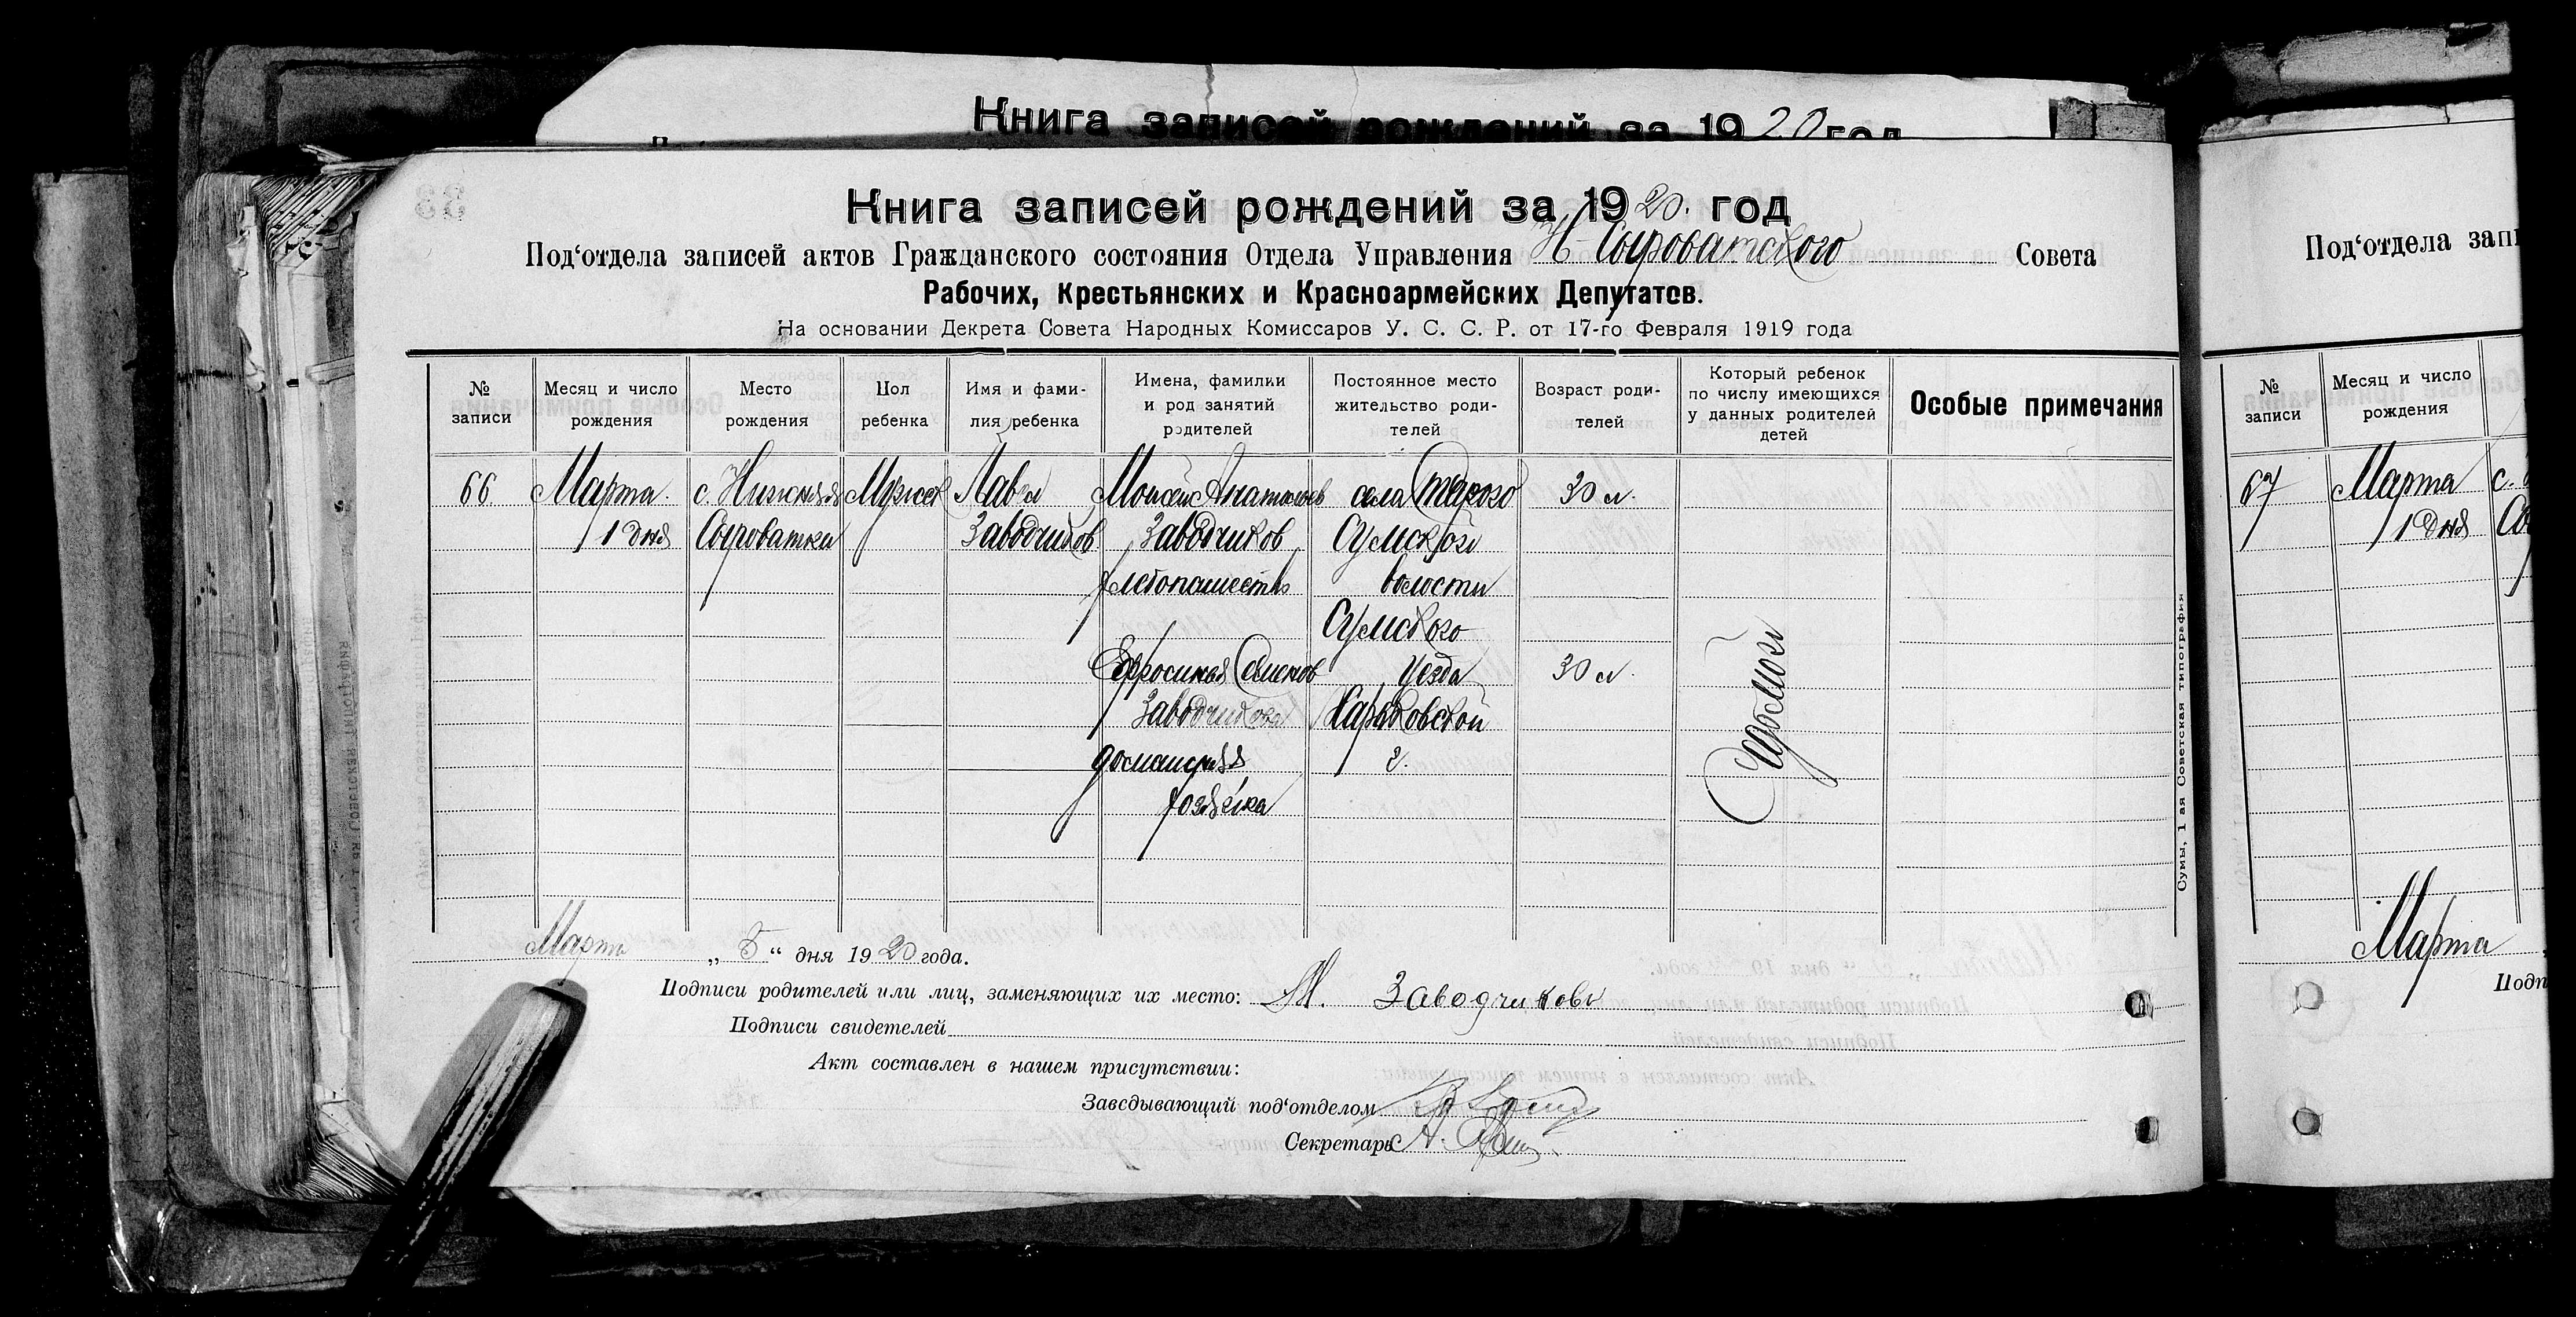 Книга записей рождений за 1920 год
Книга записей рождений за 1920. год
Под‘отдела записей актов Гражданского состояния Отдела Управления Н-Сыроватского Совета
Рабочих, Крестьянских и Красноармейских Депутатов.
На основании Декрета Совета Народных Комиссаров У. С. С. Р. от 17-го Февраля 1919 года
№ записи
Месяц и число рождения
Место рождения
Пол ребенка
Имя и фами-
лия ребенка
Имена, фамилии
и род занятий
родителей
Постоянное место
жительство роди-
телей
Возраст роди-
телей
Который ребенок
по числу имеющихся
у данных родителей
детей
Особые примечания
66.
Марта
1 дня
с. Нижняя
Сыроватка
Мужск
Заводчиков
Моисей
Заводчиков
хлебопашество
Ефросиния Семенов
Заводчикова
домашняя
хозяйка
села
Сумской
волости
Сумского
уезда
Харьковской
г.
30 л.
30 л.
Седьмой
Сумы, 1 ая Советская типография
Марта „ 5 “ дня 1920 года.
Подписи родителей или лиц, заменяющих их место: М. Заводчиковъ
Подписи свидетелей
Акт составлен в нашем присутствии:
Заведывающий под‘отделом
Секретарь
Под‘отдела запи
№ записи
Месяц и число рождения
67
Марта
1 дня
с.
Марта
Подп